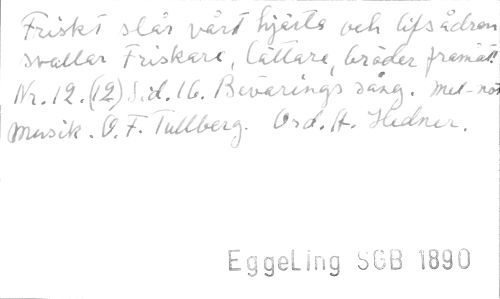 Friskt slår vårt hjärta och lifsådran
svallar Friskare, lättare, bröder framåt!
Nr. 12. (12) Sid. 16. Bevärings sång. mel-not
Musik. O. F. Tullberg. Ord. A. Hedner.
EggeLing SGB 1890